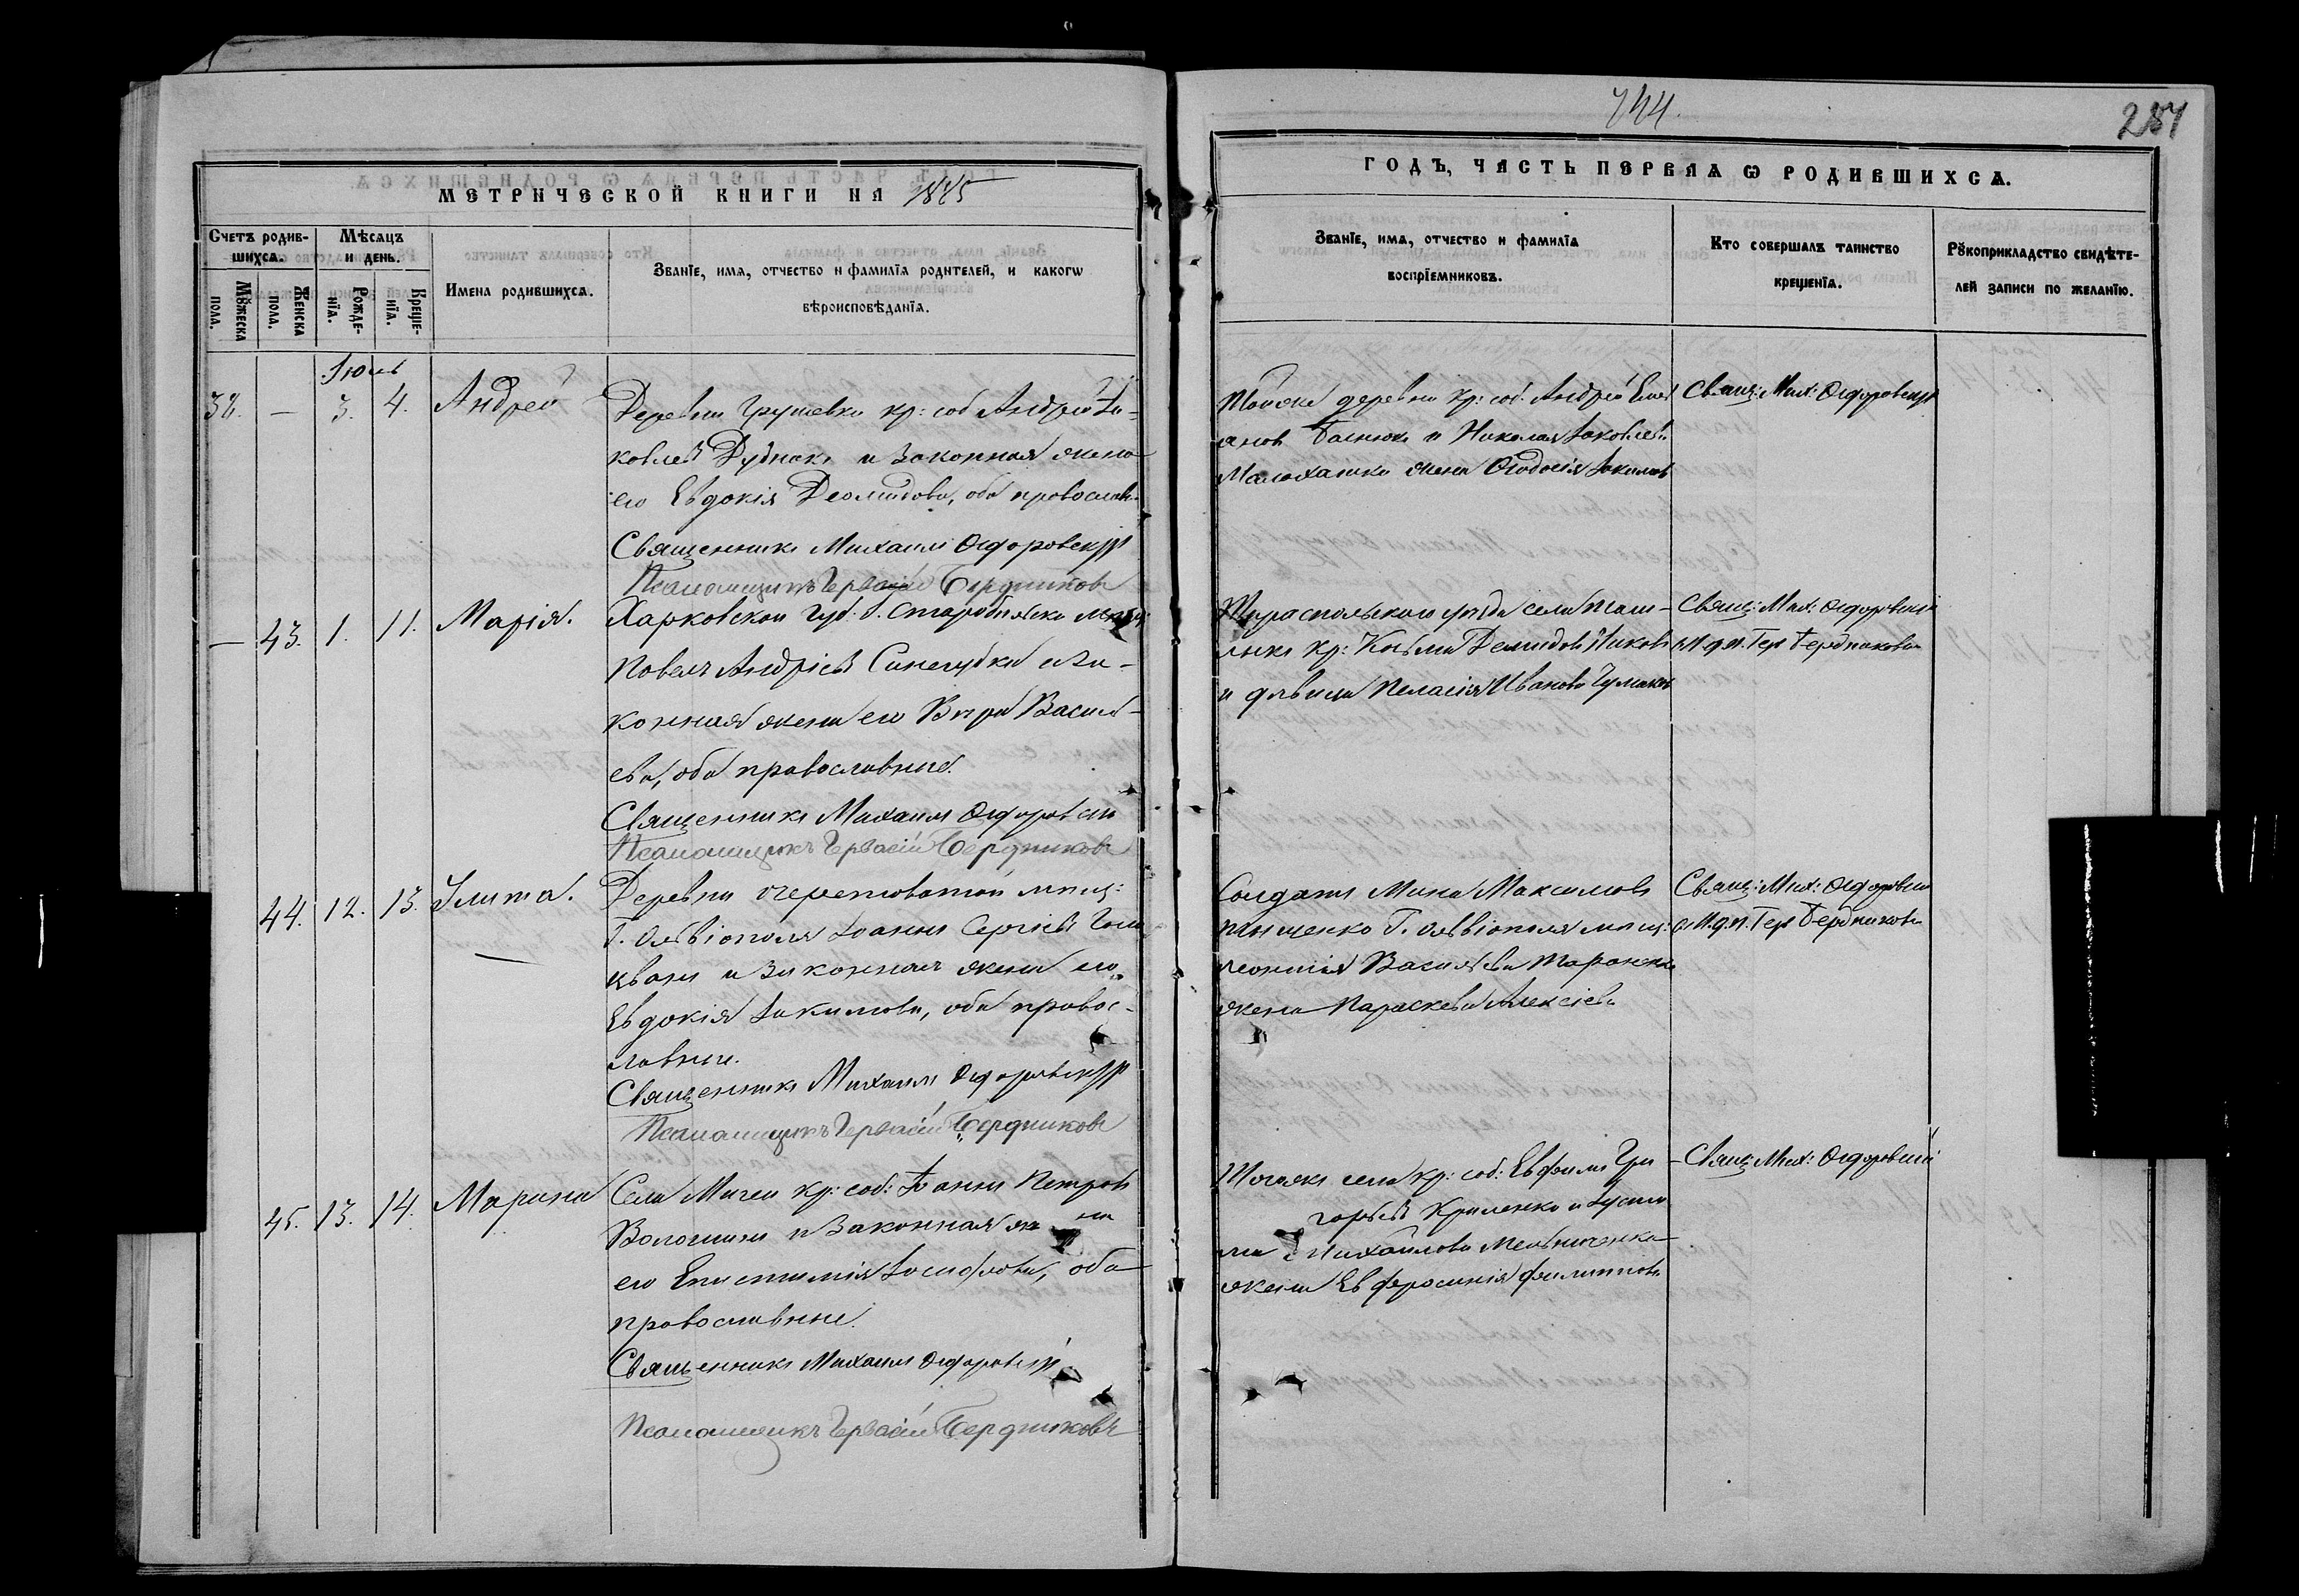 744.
284
МЕТРИЧЕСКОЙ КНИГИ НА 1885
ГОДЪ, ЧАСТЬ ПЕРВАЯ Ѡ РОДИВШИХСѦ.
Счетъ родив-
шихсѧ.
Мѣсѧцъ
и день.
Мꙋжеска
пола.
Женска
пола.
Рожде-
нїѧ.
Креще-
нїѧ.
Имена родившихсѧ.
Званїе, имѧ, отчество и фамилїѧ родителей, и какогѡ
вѣроисповѣданїѧ.
Званїе, имѧ, отчество и фамилїѧ
воспрїемниковъ.
Кто совершалъ таинство
крещенїѧ.
Рꙋкоприкладство свидѣте-
лей записи по желанїю.
38. — 3. 4. Андрей
Деревни Грушевки кр: соб Андрей Іа-
ковлев Рудчакъ и законная жена
его Евдокія Деомидова, оба православ.
Священникъ Михаилъ Ѳедоровскій
Псаломщикъ Гервасій Бердниковъ
Тойже деревни кр: соб: Андрей
и Николая Іаковлева
жена Ѳеодосія
Свящ: Мих: Ѳедоровскій
— 43. 1. 11. Марія.
Харковской губ. Г. Старобѣлска мѣщ:
Павелъ Андріевъ Синегубка и за-
конная жена его Вѣра Васил-
ева, оба православные.
Священникъ Михаилъ Ѳедоровскій
Псаломщикъ Гервасій Бердниковъ
Тираспольского уѣзда села
кр: Косьма Демидовъ
и дѣвица Пелагія Иванова
Свящ: Мих: Ѳедоровскій
съ И. д. п. Гер Бердниковъ
44. 12. 13. Улита.
Деревни Очеретоватой мѣщ:
Г. Олвіополя Іоаннъ Сергіевъ
и законная жена его
Евдокія Іакимова, оба правос-
лавные.
Священникъ Михаилъ Ѳедоровскій
Псаломщикъ Гервасій Бердниковъ
Солдатъ Мина Максимовъ
Г. Олвіополя мѣщ:
Леонтія Василева
жена Параскева Алексіева
Свящ: Мих: Ѳедоровскій
съ И. д. п. Гер Бердниковъ
45. 13. 14. Марина
Села Мигеи кр: соб: Іоаннъ Петровъ
Волошинъ и законная жена
его Епистимія Іосифова, оба
православные.
Священникъ Михаилъ Ѳедоровскій
Псаломщикъ Гервасій Бердниковъ
Тогоже села кр: соб: Евфимъ Гри-
горьевъ Криленко и
Михайлова Мельниченка
жена Евфросинія Филиппова
Свящ: Мих: Ѳедоровскій